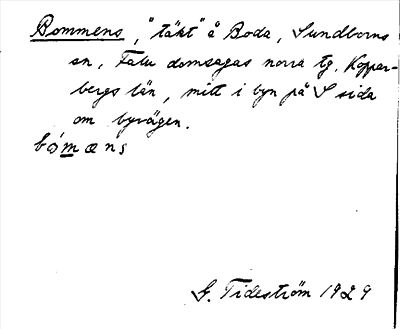 Bommens, "täkt" å Boda, Sundborns
sn, Falu domsagas norra tg. Koppar-
bergs län, mitt i byn på S sida
om byvägen.
bómæns
G. Tideström 1929